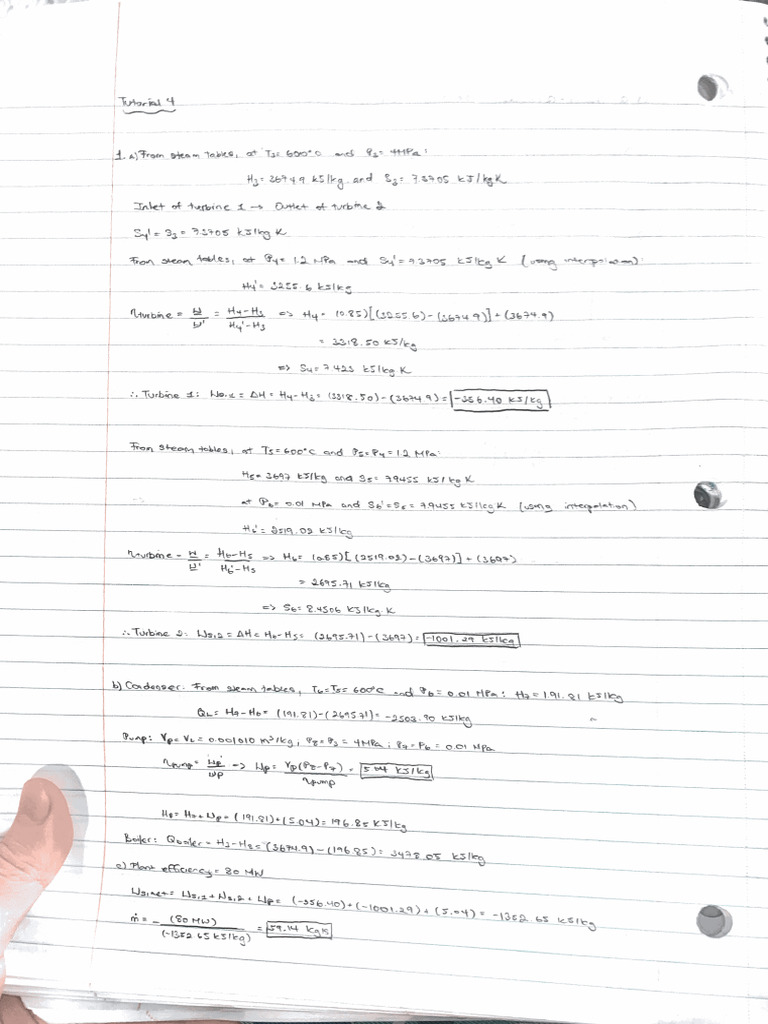 Tutorial 4
1. a) From steam tables, at T₃= 600°C and P₃= 4MPa:
H₃= 3674.9 kJ/kg and S₃= 7.3705 kJ/kg K
Inlet of turbine 1 → Outlet of turbine 2
S₄' = S₃ = 7.3705 kJ/kg K
From steam tables, at P₄= 1.2 MPa and S₄' = 7.3705 kJ/kg K (using interpolation):
H₄' = 3255.6 kJ/kg
ηturbine = W/W' = H₄-H₃/H₄'-H₃ => H₄= (0.85)[(3255.6)-(3674.9)] + (3674.9)
= 3318.50 kJ/kg
=> S₄= 7.423 kJ/kg K
∴ Turbine 1: Ws,1 = ΔH = H₄-H₃ = (3318.50)-(3674.9) = -356.40 kJ/kg
From steam tables, at T₅=600°C and P₅=P₄=1.2 MPa:
H₅= 3697 kJ/kg and S₅= 7.9455 kJ/kg K
at P₆= 0.01 MPa and S₆'=S₅= 7.9455 kJ/kg K (using interpolation)
H₆' = 2519.02 kJ/kg
ηturbine = W/W' = H₆-H₅/H₆'-H₅ => H₆= (0.85)[(2519.02)-(3697)] + (3697)
= 2695.71 kJ/kg
=> S₆= 8.4506 kJ/kg.K
∴ Turbine 2: Ws,2 = ΔH = H₆-H₅= (2695.71)-(3697) = -1001.29 kJ/kg
b) Condenser: From steam tables, T₆=T₅= 600°C and P₆= 0.01 MPa: H₇= 191.81 kJ/kg
QL= H₇-H₆= (191.81)-(2695.71)= -2503.90 kJ/kg
Pump: Vp= VL= 0.001010 m³/kg, P₈= P₃ = 4MPa; P₇= P₆= 0.01 MPa
ηpump= Wp'/Wp => Wp= Vp(P₈-P₇)/ηpump = 5.04 kJ/kg
H₈= H₇+Wp= (191.81)+(5.04)= 196.85 kJ/kg
Boiler: Qboiler= H₃-H₈= (3674.9)-(196.85) = 3478.05 kJ/kg
c) Plant efficiency = 80 MW
Ws,net= Ws,1 + Ws,2 + Wp= (-356.40)+(-1001.29)+(5.04) = -1352.65 kJ/kg
ṁ= - (80 MW)/(-1352.65 kJ/kg) = 59.14 kg/s